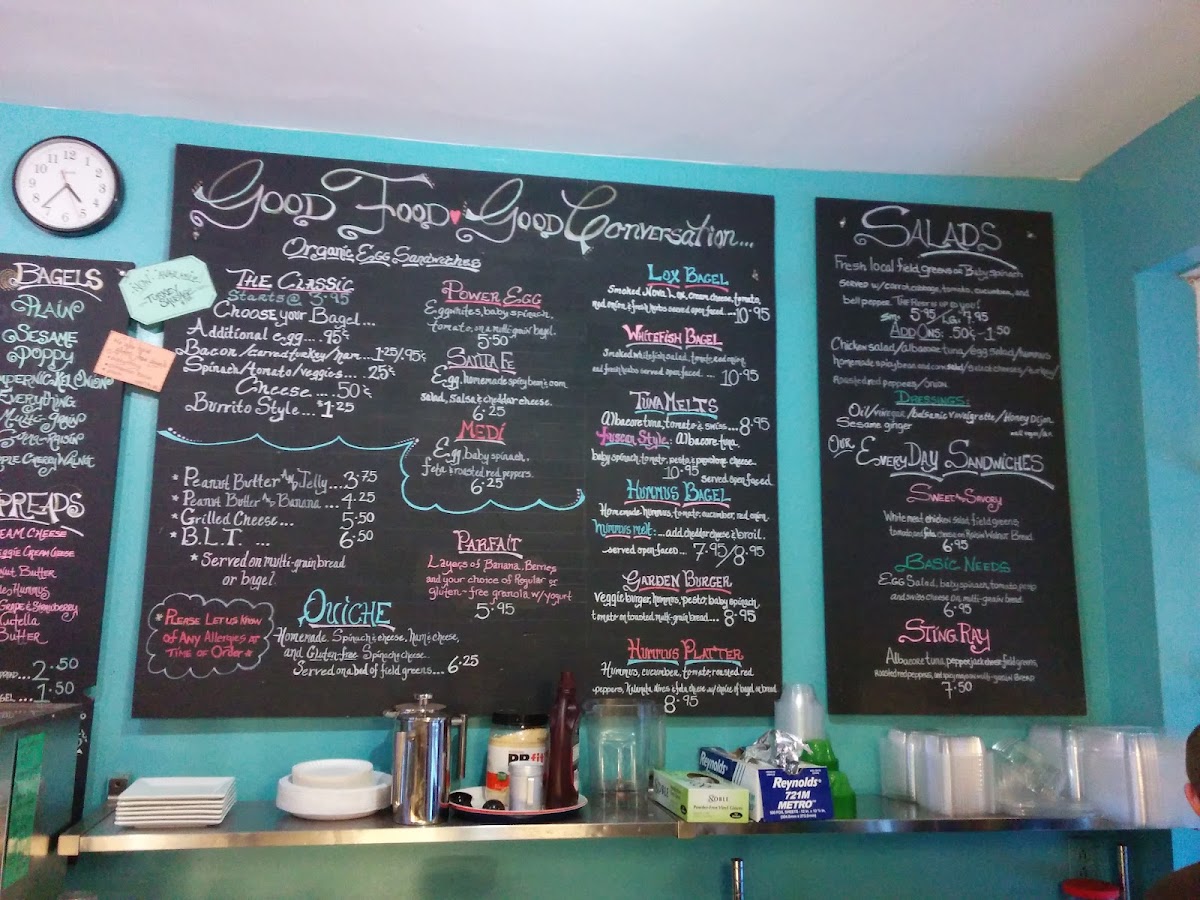 BAGELS
PLAIN
SESAME
POPPY
EVERYTHING
MULTI-GRAIN
CREAM CHEESE
VEGGIE CREAM CHEESE
BUTTER
HUMMUS
GRAPE & STRAWBERRY
BUTTER
2.50
1.50
GOOD FOOD GOOD CONVERSATION...
ORGANIC EGG SANDWICHES
THE CLASSIC
STARTS @ 3.95
CHOOSE YOUR BAGEL...
ADDITIONAL EGG.... 95¢
BACON/CARVED TURKEY/HAM...1.25/.95¢
SPINACH/TOMATO/VEGGIES... .25¢
CHEESE....50¢
BURRITO STYLE...$1.25
*PEANUT BUTTER AND JELLY...3.75
*PEANUT BUTTER AND BANANA...4.25
*GRILLED CHEESE... 5.50
*B.L.T. ... 6.50
*SERVED ON MULTI-GRAIN BREAD
OR BAGEL.
*PLEASE LET US KNOW
OF ANY ALLERGIES AT
TIME OF ORDER*
QUICHE
HOMEMADE SPINACH & CHEESE, HAM & CHEESE,
AND GLUTEN-FREE SPINACH & CHEESE.
SERVED ON A BED OF FIELD GREENS...6.25
POWER EGG
EGGWHITES, BABY SPINACH,
TOMATO, ON A MULTI-GRAIN BAGEL.
5.50
SANTA FE
EGG, HOMEMADE SPICY BEAN & CORN
SALAD, SALSA & CHEDDAR CHEESE.
6.25
MEDI
EGG, BABY SPINACH,
FETA & ROASTED RED PEPPERS.
6.25
PARFAIT
LAYERS OF BANANA, BERRIES
AND YOUR CHOICE OF REGULAR OR
GLUTEN-FREE GRANOLA W/ YOGURT
5.95
LOX BAGEL
SMOKED NOVA LOX, CREAM CHEESE, TOMATO,
RED ONION & FRESH HERBS SERVED OPEN FACED....10.95
WHITEFISH BAGEL
SMOKED WHITEFISH SALAD, TOMATO, RED ONION
AND FRESH HERBS SERVED OPEN FACED. ... 10.95
TUNA MELTS
ALBACORE TUNA, TOMATO & SWISS....8.95
TUSCAN STYLE: ALBACORE TUNA,
BABY SPINACH, TOMATO, PESTO & PROVOLONE CHEESE.
10.95 SERVED OPEN FACED.
HUMMUS BAGEL
HOMEMADE HUMMUS, TOMATO, CUCUMBER, RED ONION.
HUMMUS MELT:...ADD CHEDDAR CHEESE & BROIL.
~SERVED OPEN FACED... 7.95/8.95
GARDEN BURGER
VEGGIE BURGER, HUMMUS, PESTO, BABY SPINACH,
TOMATO ON TOASTED MULTI-GRAIN BREAD....8.95
HUMMUS PLATTER
HUMMUS, CUCUMBER, TOMATO, ROASTED RED
PEPPERS, KALAMATA OLIVES & FETA CHEESE W/ CHOICE OF BAGEL OR BREAD
8.95
SALADS
FRESH LOCAL FIELD GREENS OR BABY SPINACH
SERVED W/ CARROT, CABBAGE, TOMATO, CUCUMBER, AND
BELL PEPPER. THE REST IS UP TO YOU!
SM. 5.95/LG. 7.95
ADD ONS: .50¢-1.50
CHICKEN SALAD/ALBACORE TUNA/EGG SALAD/HUMMUS
HOMEMADE SPICY BEAN AND CORN SALAD/SLICED CHEESES/TURKEY/
ROASTED RED PEPPERS/ONION
DRESSINGS:
OIL/VINEGAR/BALSAMIC VINAIGRETTE/HONEY DIJON
SESAME GINGER
OUR EVERYDAY SANDWICHES
SWEET AND SAVORY
WHITE MEAT CHICKEN SALAD, FIELD GREENS
TOMATO AND FETA CHEESE ON RAISIN WALNUT BREAD.
6.95
BASIC NEEDS
EGG SALAD, BABY SPINACH, TOMATO, PESTO
AND SWISS CHEESE ON MULTI-GRAIN BREAD.
6.95
STING RAY
ALBACORE TUNA, PEPPERJACK CHEESE, FIELD GREENS,
ROASTED RED PEPPERS, AND SPICY MAYO ON MULTI-GRAIN BREAD
7.50
Reynolds
Reynolds
721M
METRO
NOBLE